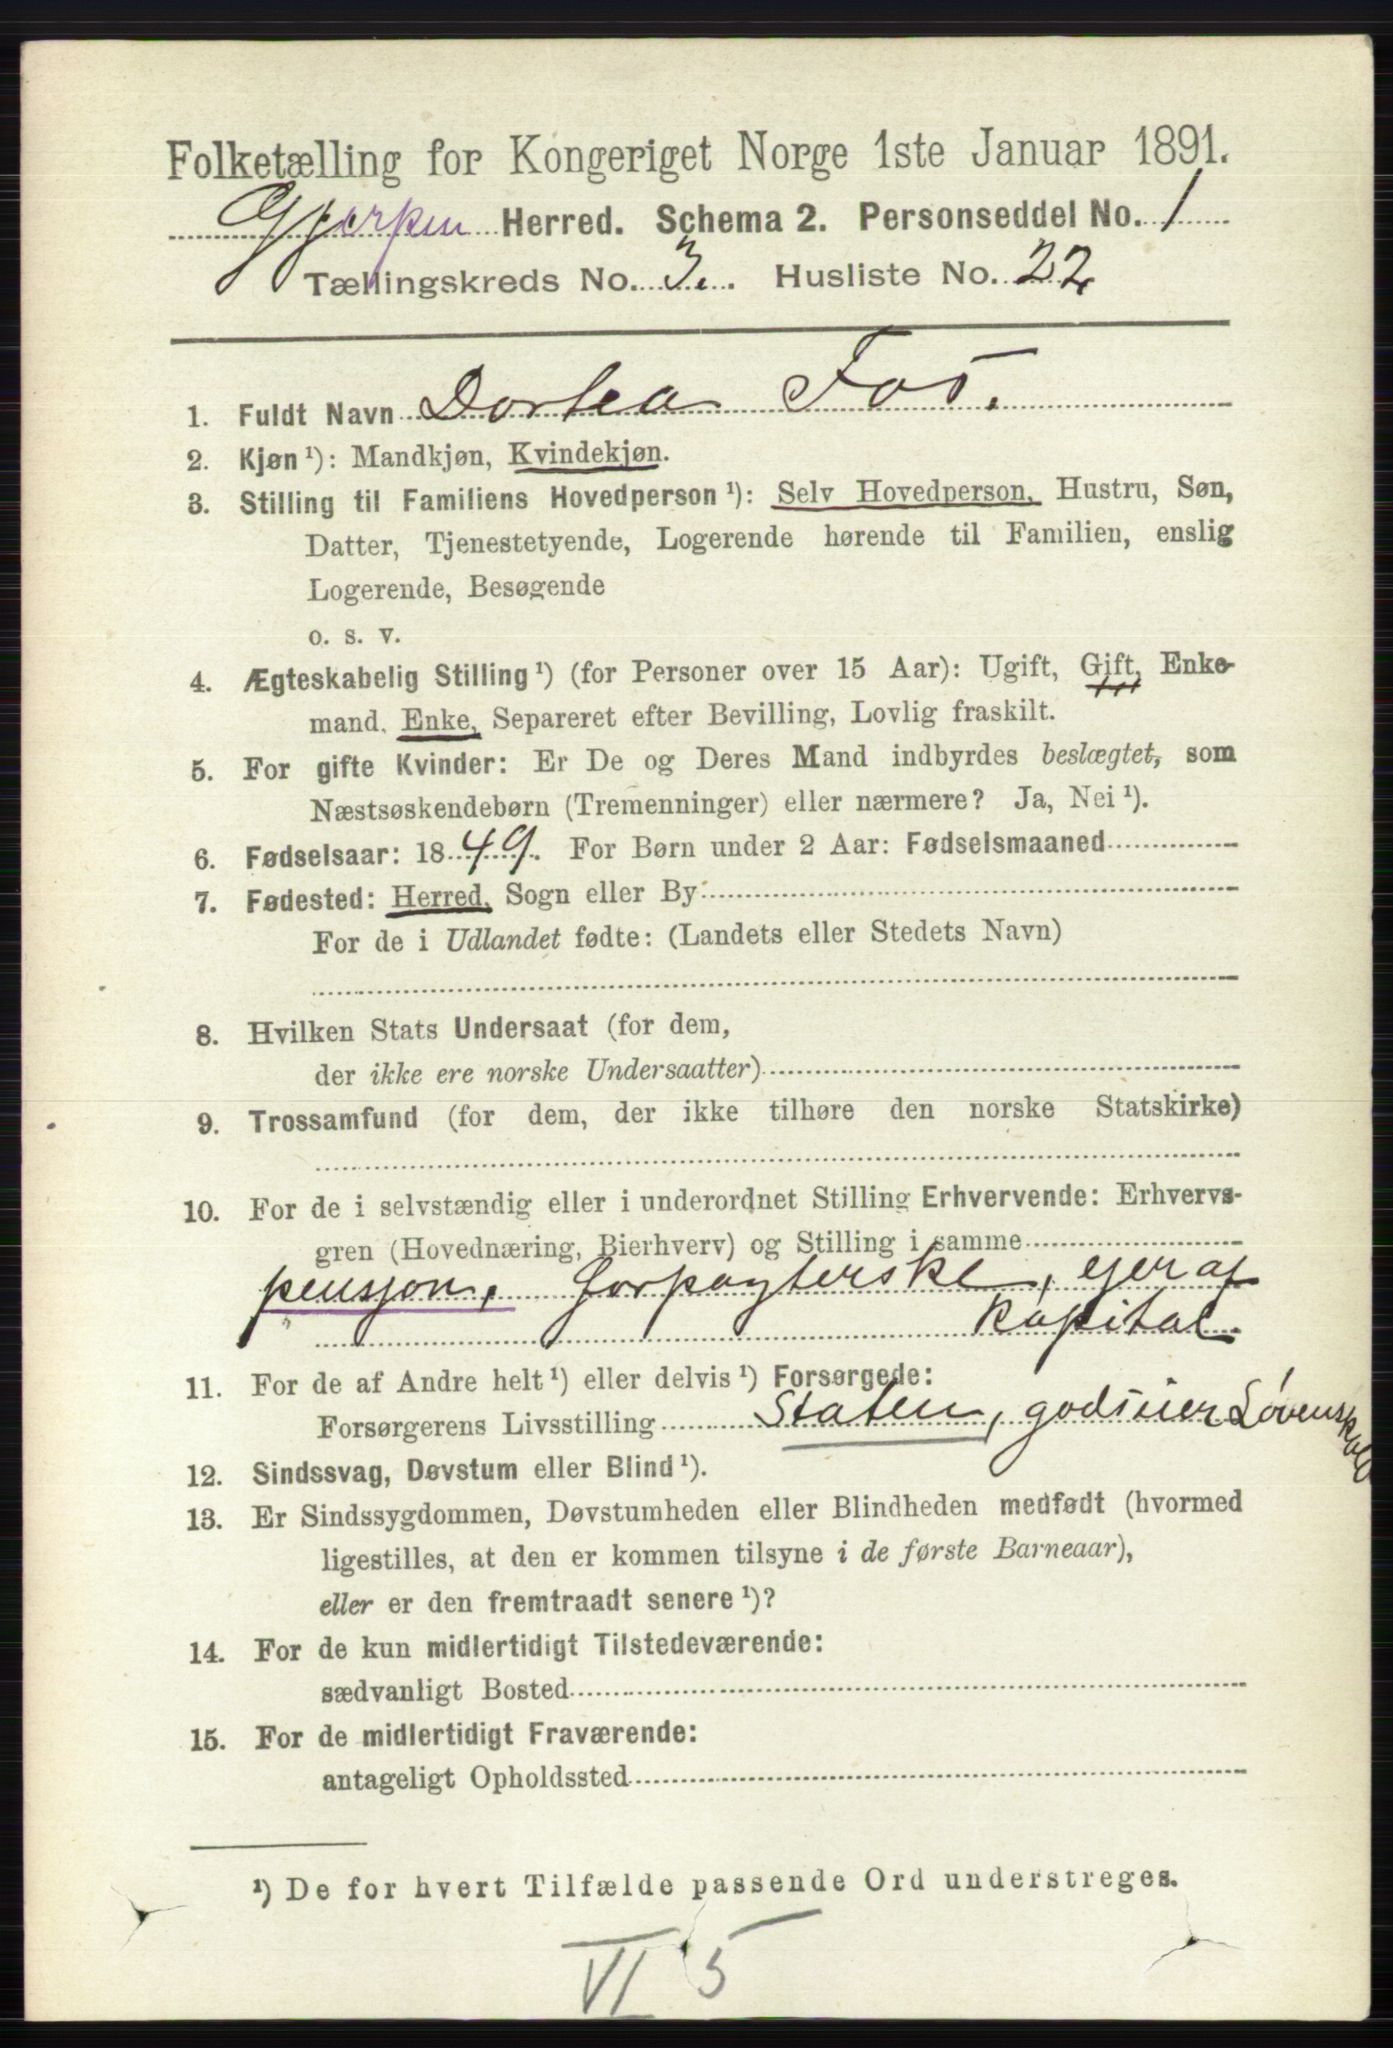 Folketælling for Kongeriget Norge 1ste Januar 1891.
Gjerpen Herred. Schema 2. Personseddel No. 1
Tællingskreds No. 3. Husliste No. 22
1. Fuldt Navn Dortea Fos.
2. Kjøn ¹): Mandkjøn, Kvindekjøn.
3. Stilling til Familiens Hovedperson ¹): Selv Hovedperson, Hustru, Søn,
Datter, Tjenestetyende, Logerende hørende til Familien, enslig
Logerende, Besøgende
o. s. v.
4. Ægteskabelig Stilling ¹) (for Personer over 15 Aar): Ugift, Gift, Enke-
mand, Enke, Separeret efter Bevilling, Lovlig fraskilt.
5. For gifte Kvinder: Er De og Deres Mand indbyrdes beslægtet, som
Næstsøskendebørn (Tremenninger) eller nærmere? Ja, Nei ¹).
6. Fødselsaar: 1849. For Børn under 2 Aar: Fødselsmaaned
7. Fødested: Herred, Sogn eller By
For de i Udlandet fødte: (Landets eller Stedets Navn)
8. Hvilken Stats Undersaat (for dem,
der ikke ere norske Undersaatter)
9. Trossamfund (for dem, der ikke tilhøre den norske Statskirke)
10. For de i selvstændig eller i underordnet Stilling Erhvervende: Erhvervs-
gren (Hovednæring, Bierhverv) og Stilling i samme
pensjon, forpagterske, ejer af
kapital.
11. For de af Andre helt ¹) eller delvis ¹) Forsørgede:
Forsørgerens Livsstilling Staten, godseier Løvenskold
12. Sindssvag, Døvstum eller Blind ¹).
13. Er Sindssygdommen, Døvstumheden eller Blindheden medfødt (hvormed
ligestilles, at den er kommen tilsyne i de første Barneaar),
eller er den fremtraadt senere ¹)?
14. For de kun midlertidigt Tilstedeværende:
sædvanligt Bosted
15. For de midlertidigt Fraværende:
antageligt Opholdssted
¹) De for hvert Tilfælde passende Ord understreges.
VI 5